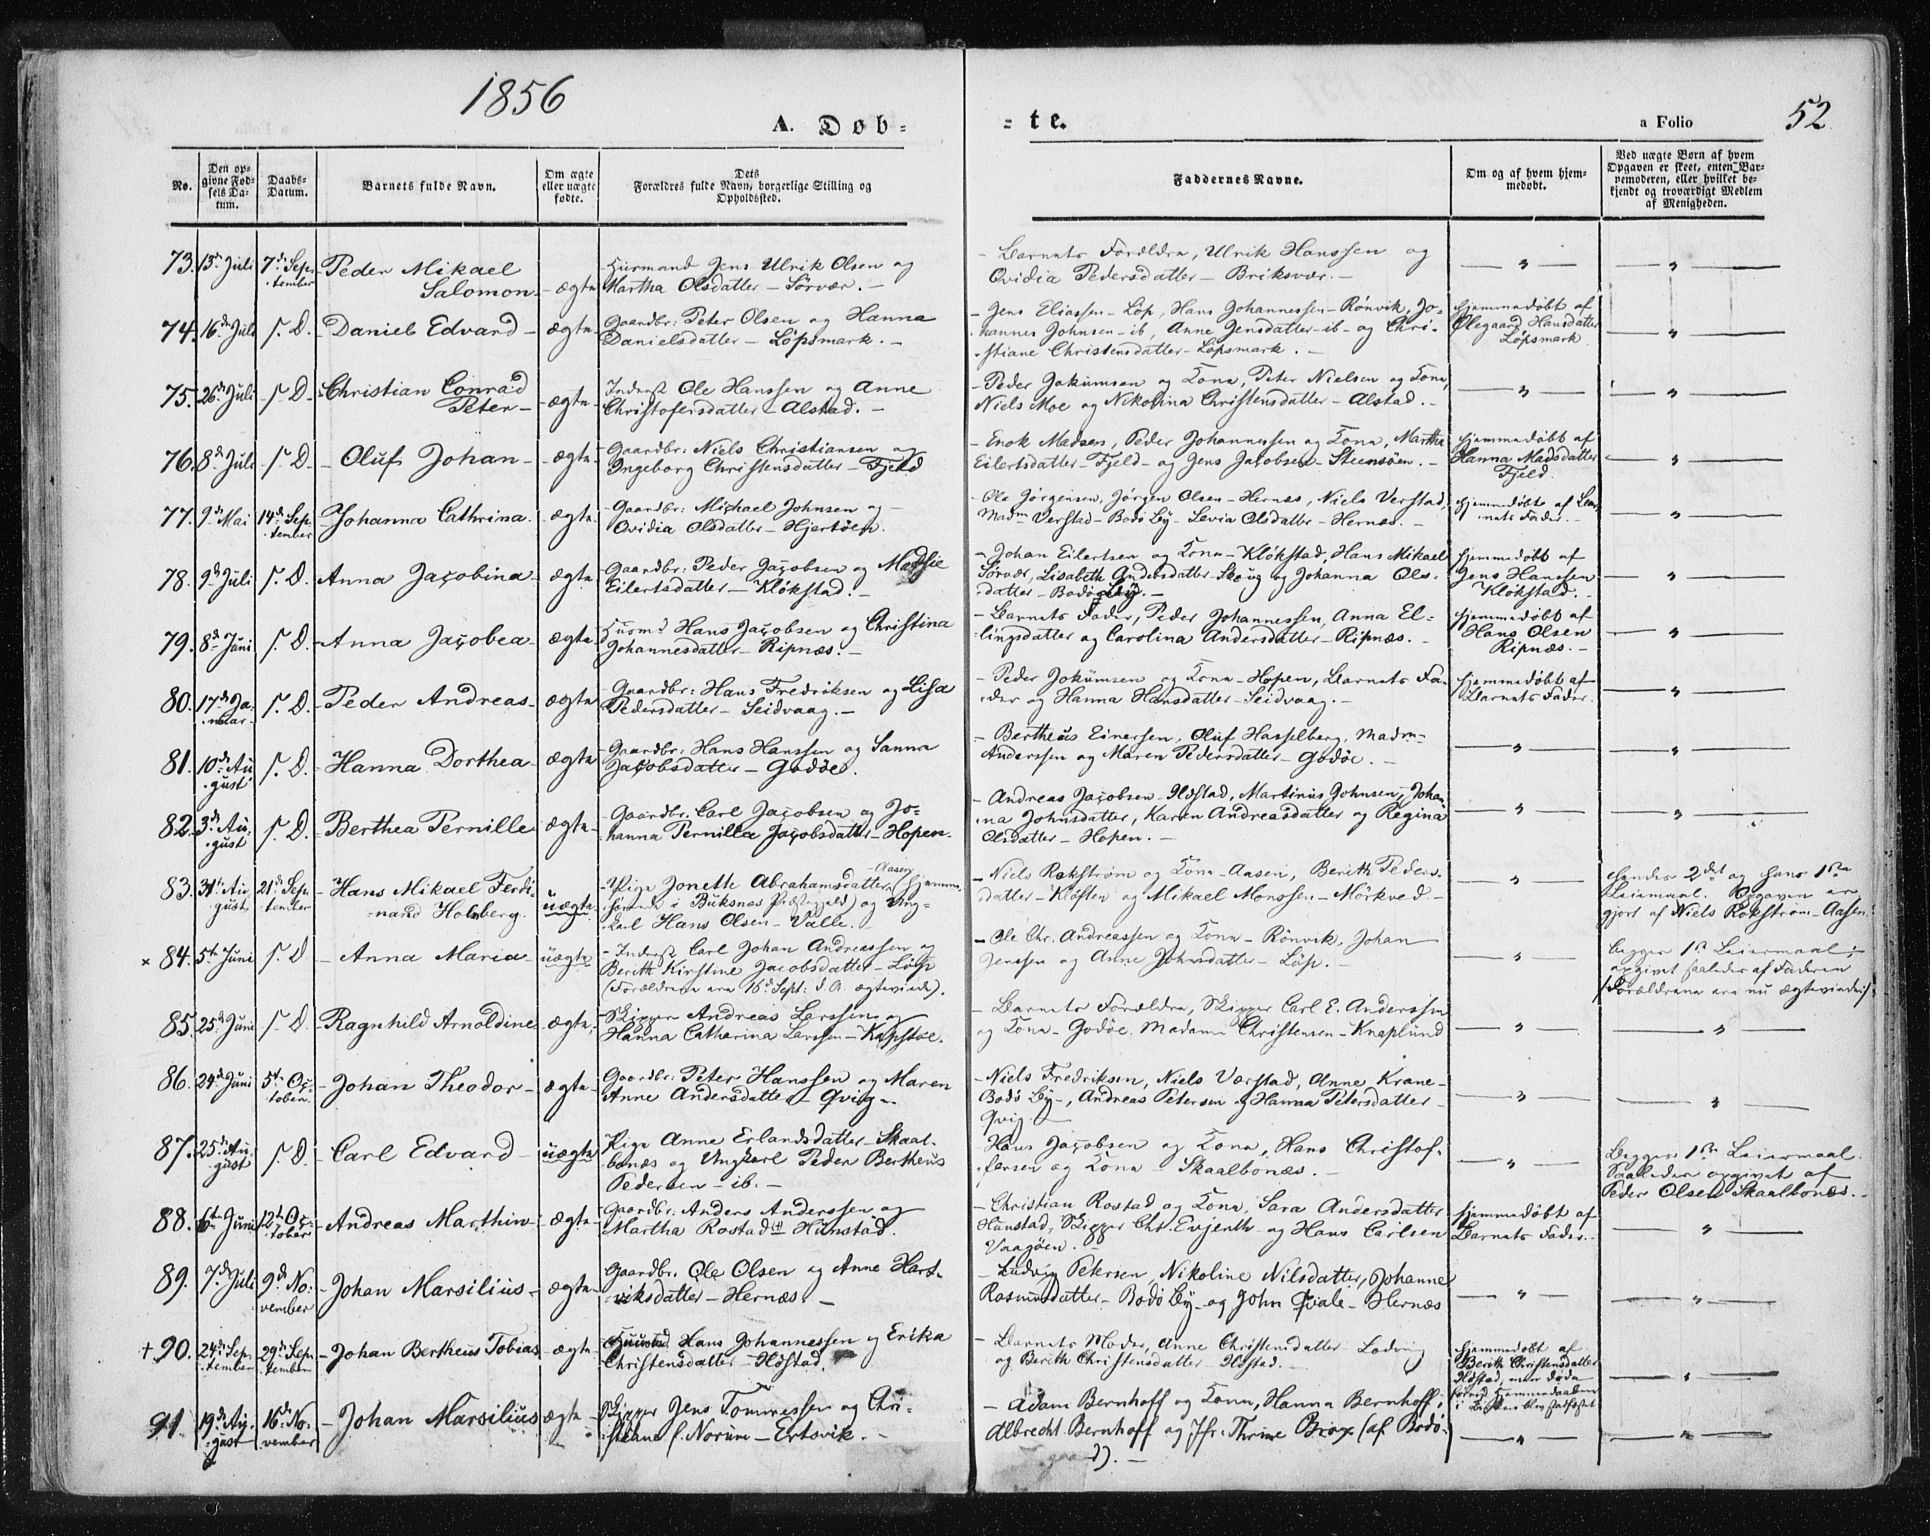 1856
A. Døb-
-te.
a Folio
52
No.
Den op-
givne Fød-
sels Da-
tum.
Daabs-
Datum.
Barnets fulde Navn.
Om ægte
eller uægte
fødte.
Dets
Forældres fulde Navn, borgerlige Stilling og
Opholdssted.
Faddernes Navne.
Om og af hvem hjem-
medøbt.
Ved uægte Børn af hvem
Opgaven er skeet, enten Bar-
nemoderen, eller hvilket be-
kjendt og troværdigt Medlem
af Menigheden.
73. 13de Juli 7de Sep-
tember
Peder Mikael
Salomon - ægte
Huusmand Jens Ulrik Olsen og
Martha Olsdatter - Sörvær. -
- Barnets Forældre, Ulrik Hanssen og
Ovidia Pedersdatter - Briksvær. -
74. 16de Juli s. D. Daniel Edvard - ægte
- Gaardbr: Peter Olsen og Hanna
Danielsdatter - Löpsmark. -
- Jens Eliassen - Löp, Hans Johannessen - Rönvik, Jo-
hannes Johnsen - ib, Anne Jensdatter - ib - og Chri-
stiane Christensdatter - Löpsmark. -
Hjemmedøbt af
Olegaard Hansdatter
Löpsmark
75. 26de Juli s. D. Christian Conrad
Peter - ægte
- Inderst Ole Hanssen og Anne
Christofersdatter - Alstad. -
- Peder Jokumsen og Kona, Peter Nielsen og Kona,
Niels Moe og Nikolina Christensdatter - Alstad. -
76. 8de Juli s. D. - Oluf Johan - ægte
- Gaardbr: Niels Christiansen og
Ingeborg Christensdatter - Fjeld
- Enok Madsen, Peder Johannessen og Kona, Martha
Eilertsdatter - Fjeld - og Jens Jacobsen - Steensöen. -
Hjemmedøbt af
Hanna Madsdatter
Fjeld.
77. 9de Mai 14de Sep-
tember
Johanna Cathrina. ægte
- Gaardbr: Michael Johnsen og
Ovidia Olsdatter - Hjertöen.
- Ole Jörgensen, Jörgen Olsen - Hernæs, Niels Verstad,
Madm Verstad - Bodö By - Levia Olsdatter - Hernæs. -
Hjemmedøbt af Bar-
nets Fader. -
78. 9de Juli s. D. Anna Jacobina - ægte
- Gaardbr: Peder Jacobsen og
Eilertsdatter - Klökstad. -
- Johan Eilertsen og Kona - Klökstad, Hans Mikael
Sörvær, Lisabeth Andersdatter - Skoug og Johanna Ols-
datter - Bodö By. -
Hjemmedøbt af
Jens Hanssen
Klökstad. -
79. 8de Juni s. D. Anna Jacobea - ægte
- Husmd Hans Jacobsen og Christina
Johannesdatter - Ripnæs. -
- Barnets Fader, Peder Johannessen, Anna El-
lingsdatter og Carolina Andersdatter - Ripnæs. -
Hjemmedøbt af
Hans Olsen
Ripnæs. -
80. 17de Ja-
nuar - s. D. Peder Andreas - ægte
- Gaardbr: Hans Fredriksen og Lisa
Pedersdatter - Seidvaag. -
- Peder Jokumsen og Kona - Hopen, Barnets Fa-
der og Hanna Hansdatter - Seidvaag. -
Hjemmedøbt af
Barnets Fader.
81. 10de Au-
gust s. D. Hanna Dorthea - ægte
- Gaardbr: Hans Hanssen og Sanna
Jacobsdatter - Godöe.
- Bertheus Einersen, Oluf Hasselberg, Madm
Anderssen og Maren Pedersdatter - Godöe. -
82. 3de Au-
gust s. D. Berthea Pernille ægte
- Gaardbr: Carl Jacobsen og Jo-
hanna Pernilla Jacobsdatter - Hopen.
- Andreas Jacobsen - Höstad, Martinus Johnsen, Johan-
na Johnsdatter, Karen Andreasdatter og Regina
Olsdatter - Hopen. -
83. 31te Au-
gust 21de Sep-
tember - Hans Mikael Ferdi-
nand Holsberg. uægte
- Pige Jonette Abrahamsdatter Aasen, Hjemme-
hörende i Buksnæs Præstegjeld) og Ung-
karl Hans Olsen - Valle. -
- Niels Rokström og Kona - Aasen, Berith Peders-
datter - Klöften og Mikael Monssen - Mörkved -
Hendes 2det og Hans 1ste
Leiermaal. Opgaven er
gjort af Niels Rokström - Aasen.
× 84. 5te Juni s. D. - Anna Maria - uægte
- Inderst Carl Johan Andreassen og
Berith Kirstine Jacobsdatter - Löp
(Forældrene ere 16de Sept: d. A. ægteviede).
- Ole Chr. Andreassen og Kona - Rönvik, Johan
Jenssen og Anne Johnsdatter - Löp. -
Begges 1ste Leiermaal;
opgivet saaledes af Faderen
(Forældrene ere nu ægteviede)
85. 25de Juni s. D. - Ragnhild Arnoldine ægte
- Skipper Andreas Larssen og
Hanna Catharina Larssen - Kopstoe.
- Barnets Forældre, Skipper Carl E. Anderssen
og Kona - Godöe, Madame Christensen - Knaplund
86. 24de Juni 5te Oc-
tober. - Johan Theodor - ægte
- Gaardbr: Peter Hanssen og Maren
Anne Andersdatter - Qvig -
- Niels Fredriksen, Niels Værstad, Anne Krane -
Bodö By -, Andreas Petersen og Hanna Petersdatter -
Qvig -
87. 25de Au-
gust s. D. - Carl Edvard - uægte
Pige Anne Erlandsdatter - Skaal-
bonæs og Ungkarl Peder Bertheus
Pedersen - ib. -
Hans Jacobsen og Kona, Hans Christof-
fersen og Kona - Skaalbonæs. -
Begges 1ste Leiermaal.
Saaledes opgivet af
Peder Olsen Skaalbonæs. -
88. 6te Juni 12te Oc-
tober - Andreas Marthin - ægte
Gaardbr: Anders Anderssen og
Martha Rostad - Hunstad.
- Christian Rostad og Kona, Sara Andersdatter
Hunstad, Skipper Chr. Evjenth og Hans Carlsen
Vaagöen. -
Hjemmedøbt af
Barnets Fader. -
89. 7de Juli 9de No-
vember - Johan Marsilius - ægte
Gaardbr. Ole Olsen og Anne Hart-
viksdatter - Hernæs. -
- Ludvig Petersen, Nikoline Nilsdatter, Johanne
Rasmusdatter - Bodö By - og John Qvale - Hernæs
+ 90. 24de Sep-
tember 29de Sep-
tember - Johan Bertheus Tobias ægte
Hans Johannessen og Erika
Christensdatter - Höstad.
- Barnets Moder, Anne Christensdatter - Loding
og Berith Christensdatter - Höstad. -
Hjemmedøbt af
Berith Christensdatter
Höstad, men døde
forend Hjemmedaaben
i Kirken blev stadfæstet
91. 19de Au-
gust 16de No-
vember - Johan Marsilius ægte
Skipper Jens Tommessen og Chri-
stiane f. Norum - Ertsvik. -
- Adam Bernhoff og Kona, Hanna Bernhoff,
Albrecht Bernhoff og Jfr: Thrine Brox (af Bodö-
gaard). -